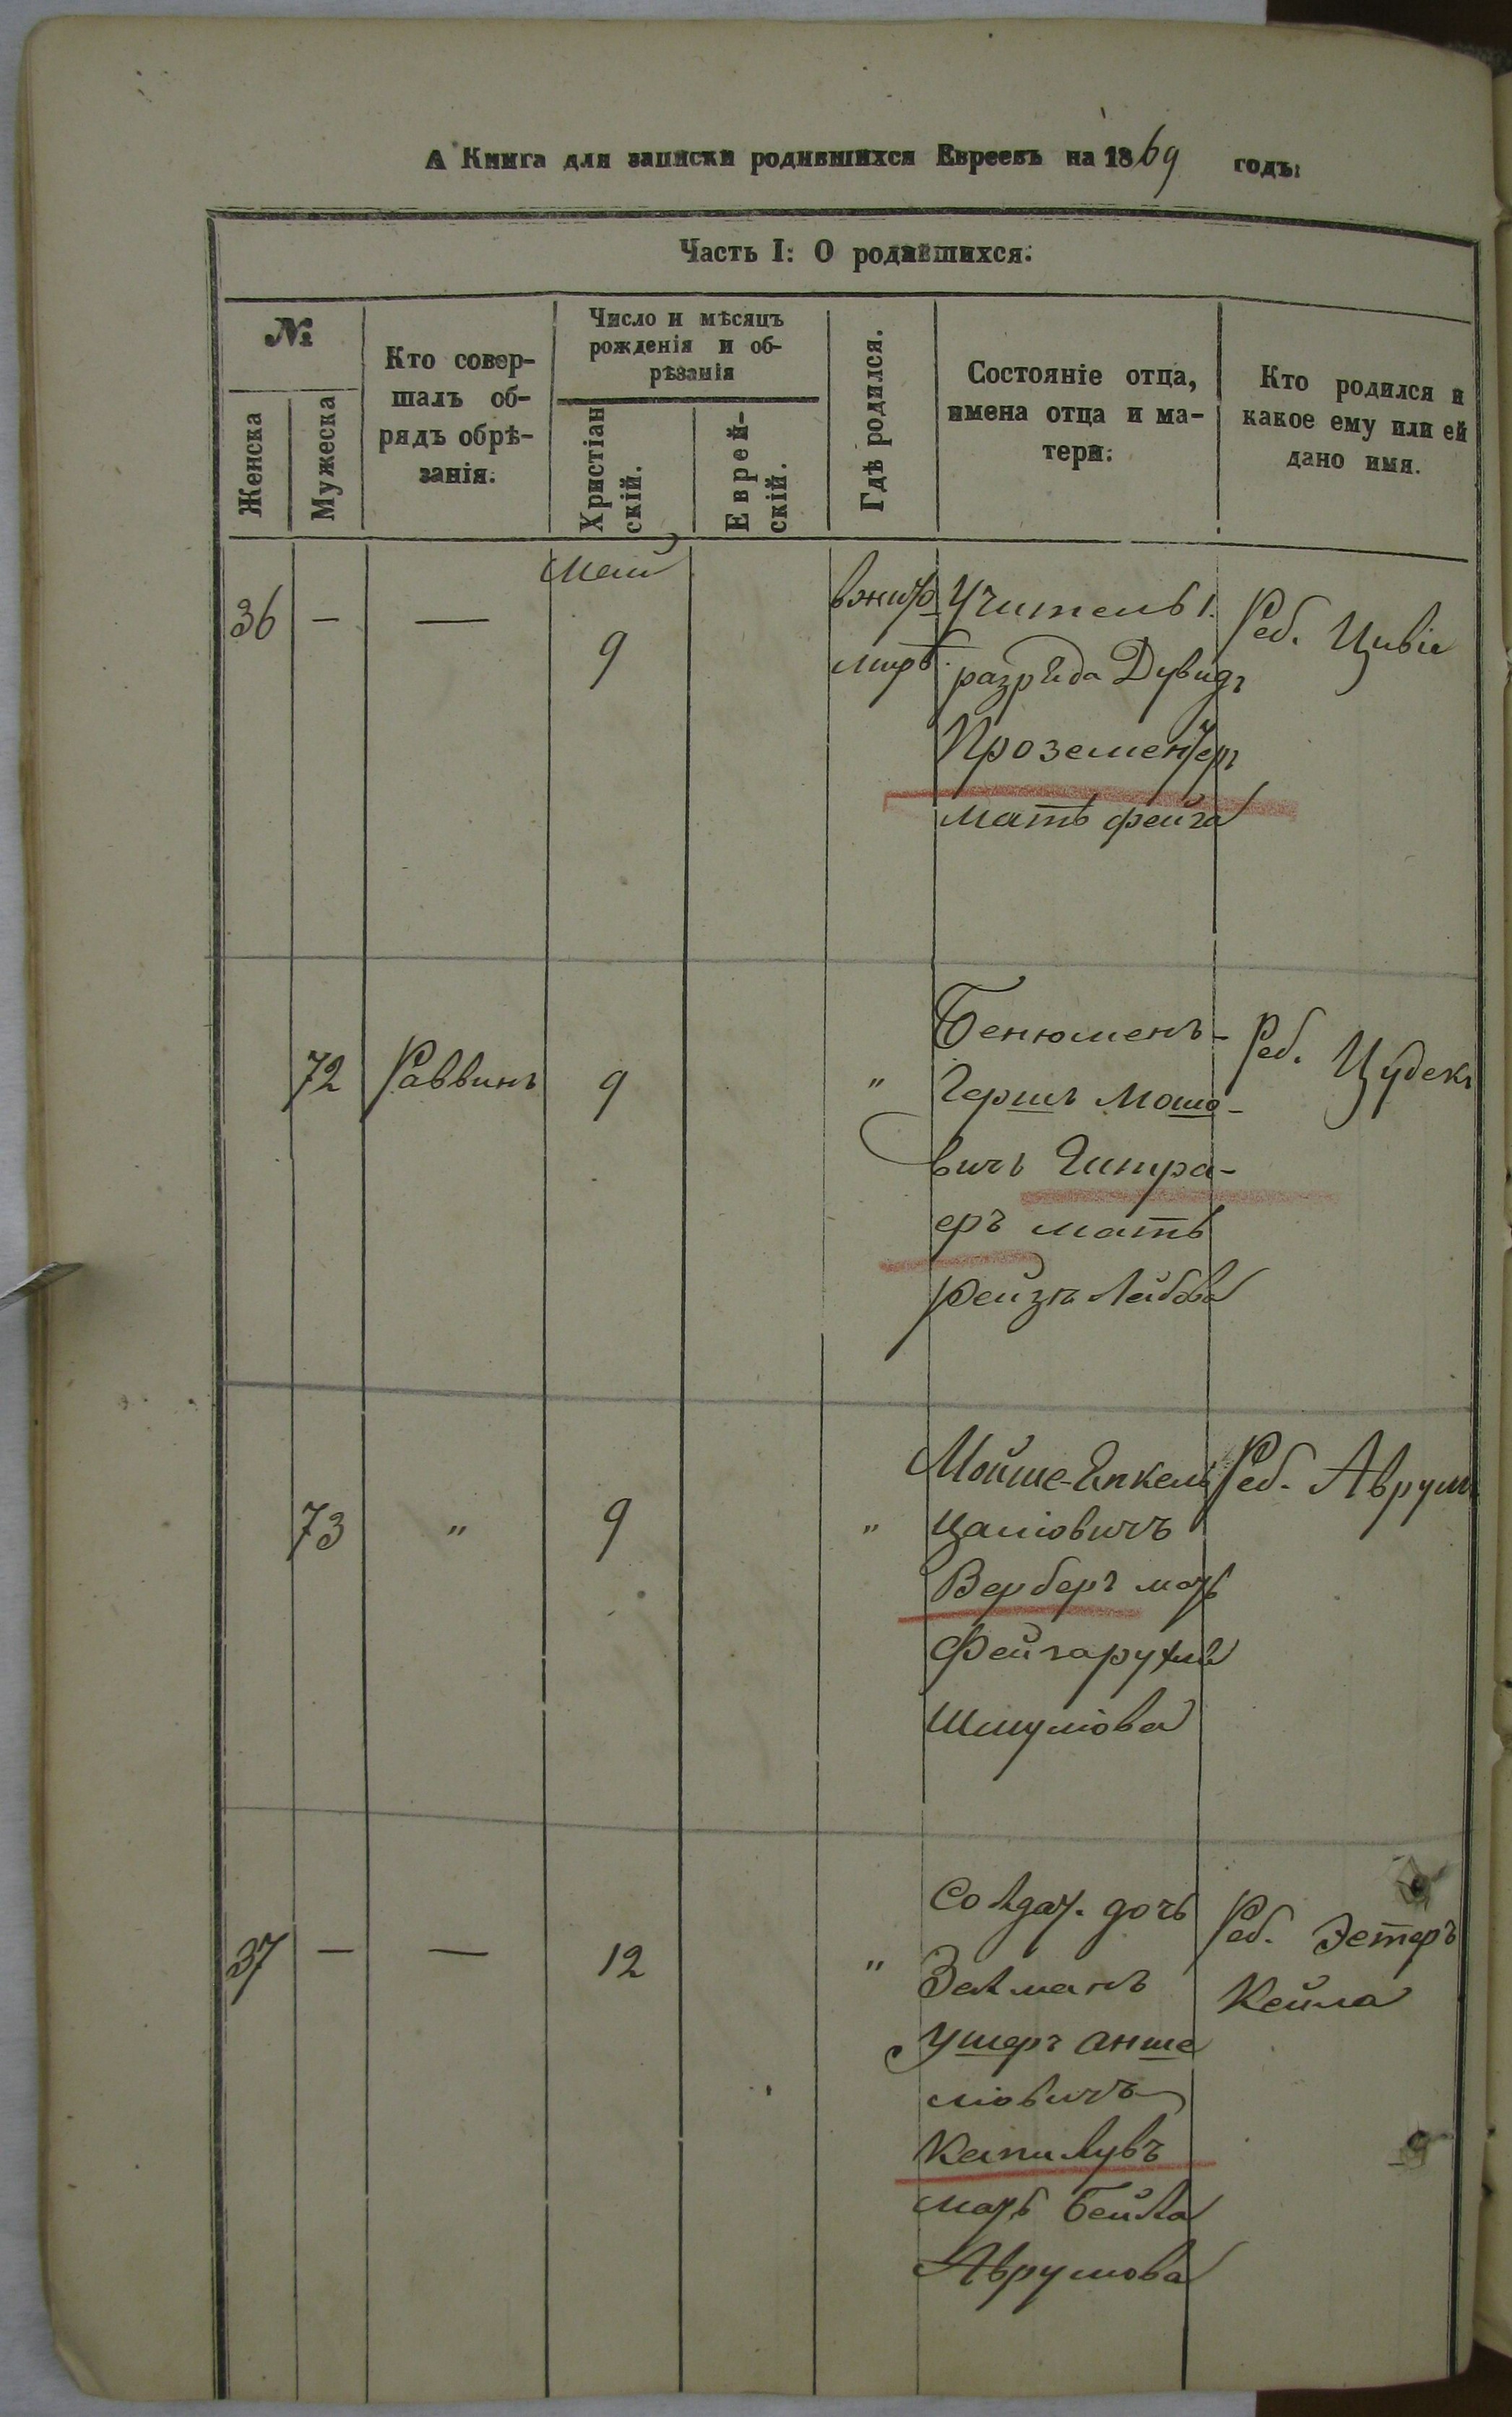 А Книга для записки родившихся Евреевъ на 1869 годъ:
Часть I: О родившихся:
№
Женска
Мужеска
Кто совер-
шалъ об-
рядъ обрѣ-
занія:
Число и мѣсяцъ
рожденія и об-
рѣзанія
Христіан
скій.
Еврей-
скій.
Гдѣ родился.
Состояніе отца,
имена отца и ма-
тери:
Кто родился и
какое ему или ей
дано имя.
Май
36 — — 9
вжито
мирѣ.
Учитель 1.
разряда Дувидъ
Прозементеръ
мать фейга
Реб. Цивія
72 Раввинъ 9 "
Бенюменъ-
Гершъ Мошо-
вичъ
еръ мать
Рейзя Лейбова
Реб. Цудекъ
73 " 9 "
Мойше-Янкель
Цаліовичъ
Верберъ мать
Фейгарухля
Шмуліова
Реб. Аврумъ
37 — — 12 "
Солдат. дочь
Залманъ
Ушеръ Анше
ліовичъ
Капилувъ
мать Бейла
Аврумова
Реб. Эстеръ
Кейла